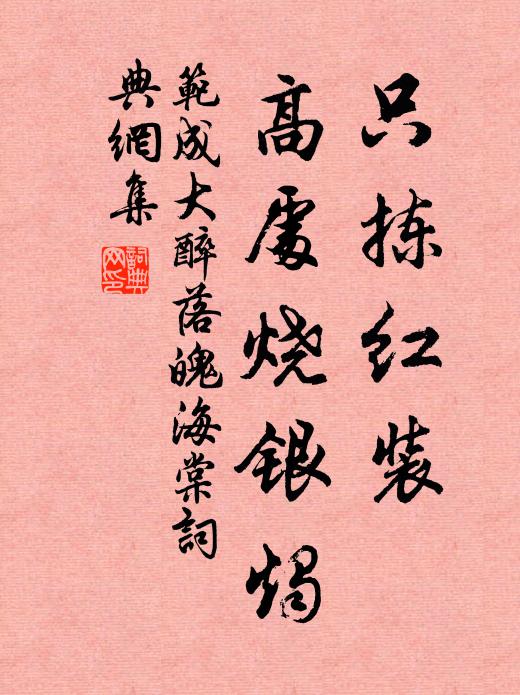 只拣红装
高處烧银烛
範成大醉落魄海棠詞
典網集
詞典网印